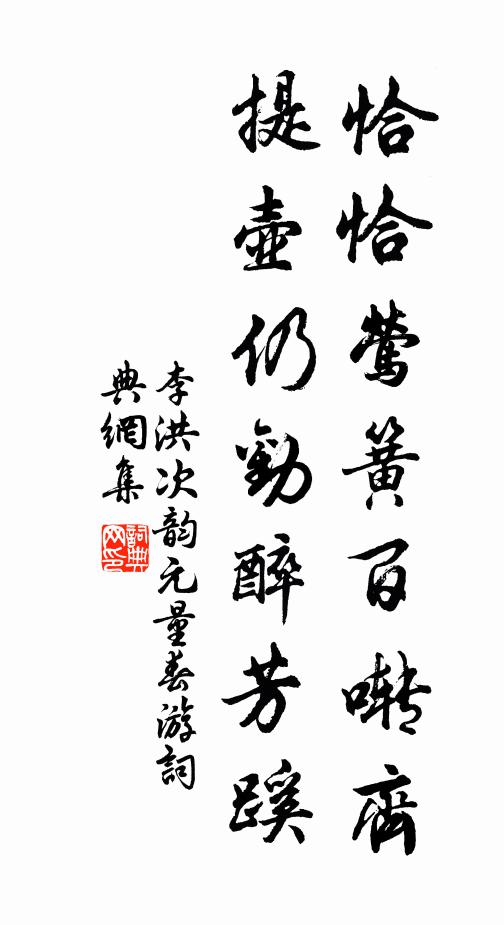 恰恰鶯簧百囀齊
提壺仍勸醉芳蹊
李洪次韵元量春游詞
典網集
詞典網印